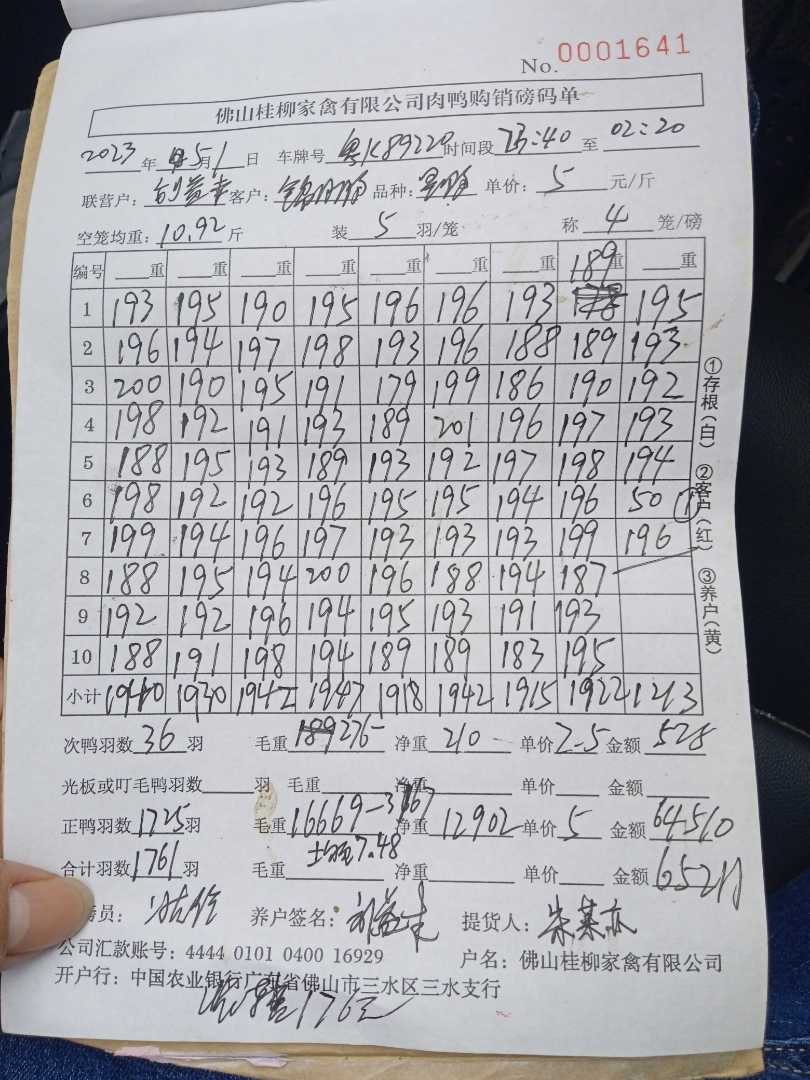 No. 0001641
佛山桂柳家禽有限公司肉鸭购销磅码单
2023年 5月1日 车牌号 粤K89220 时间段 23:40 至 02:20
联营户: 客户: 品种: 单价: 5 元/斤
空笼均重: 10.92 斤 装 5 羽/笼 称 4 笼/磅
189
编号 重 重 重 重 重 重 重 重 重
1 193 195 190 195 196 196 193 195
2 196 194 197 198 193 196 188 189 193
3 200 190 195 191 179 199 186 190 192
4 198 192 191 193 189 201 196 197 193
5 188 195 193 189 193 192 197 198 194
6 198 192 192 196 195 195 194 196 50 ①
7 199 194 196 197 193 193 193 199 196
8 188 195 194 200 196 188 194 187
9 192 192 196 194 195 193 191 193
10 188 191 198 194 189 189 183 195
小计 1940 1930 1942 1947 1918 1942 1915 1922 1213
①存根(白) ②客户(红) ③养户(黄)
次鸭羽数 36 羽 毛重 276 净重 210 单价 2.5 金额 528
光板或叮毛鸭羽数 羽 毛重 净重 单价 金额
正鸭羽数 1725 羽 毛重 16669-3767 净重 12902 单价 5 金额 64510
合计羽数 1761 羽 均重7.48 毛重 净重 单价 金额
员: 养户签名: 提货人:
公司汇款账号: 4444 0101 0400 16929 户名: 佛山桂柳家禽有限公司
开户行: 中国农业银行广东省佛山市三水区三水支行
176